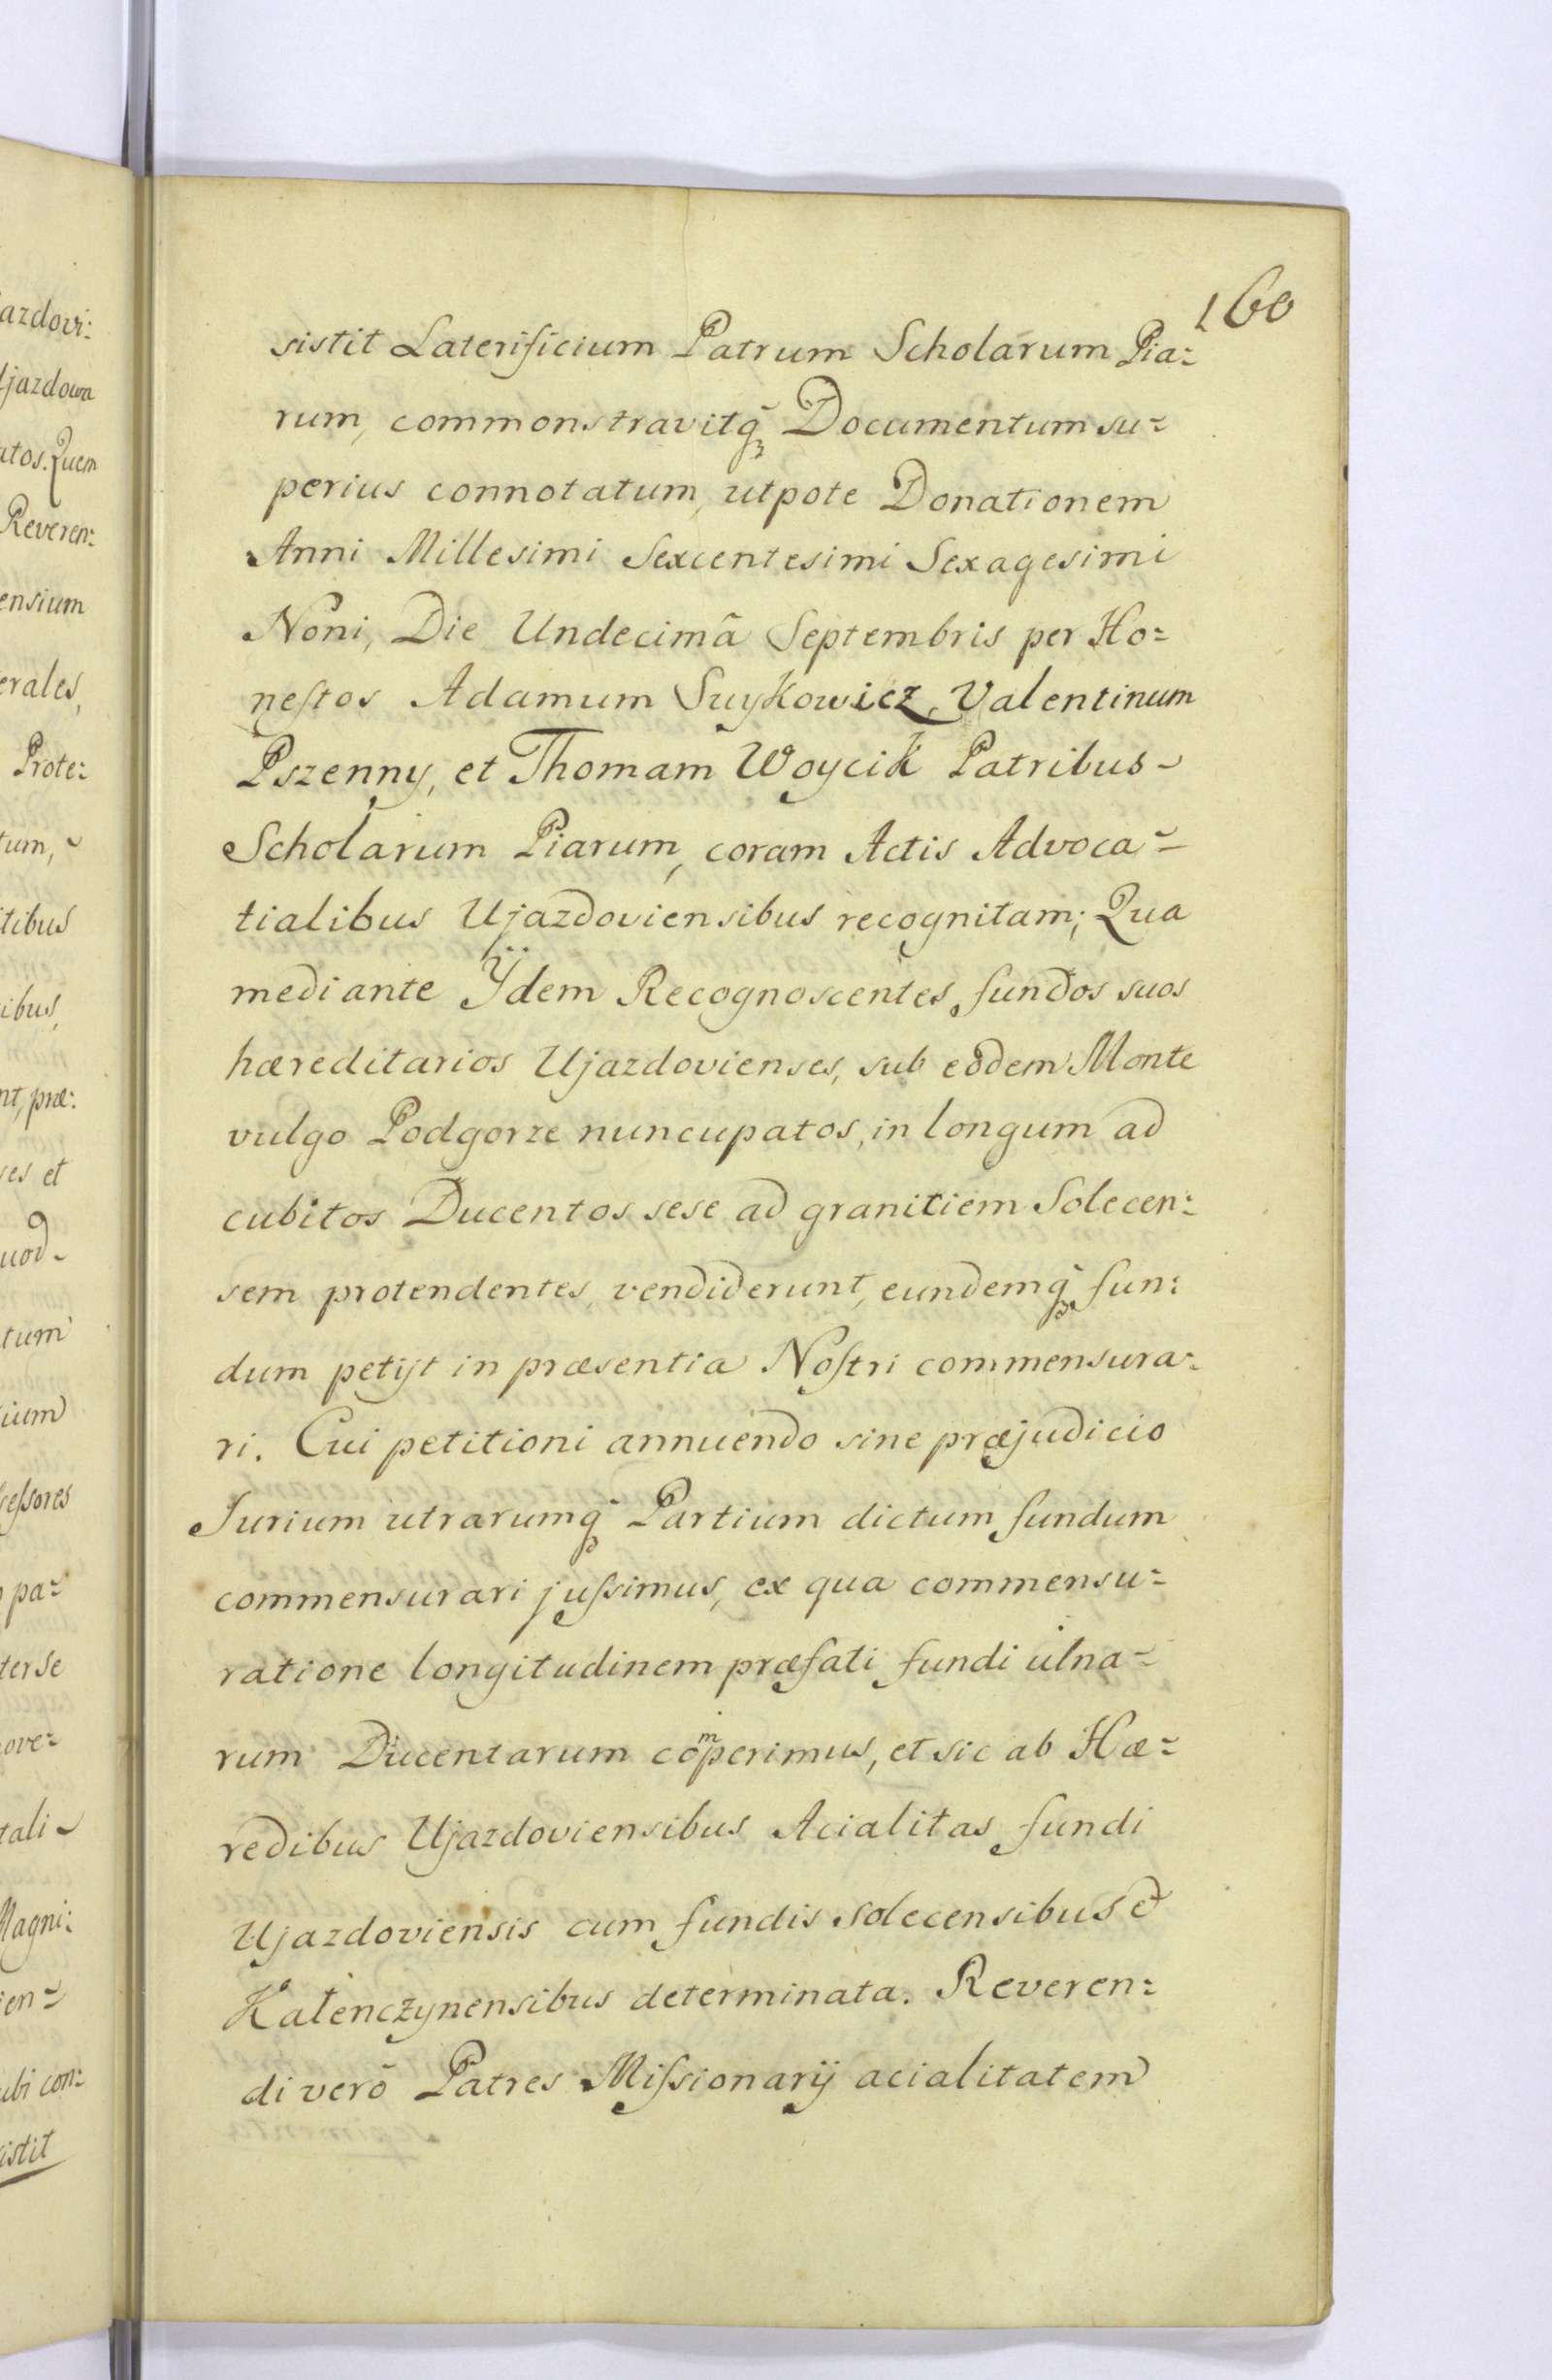 azdovi:
Ujazdowa
atos. Quem
Reveren:
ensium
erales,
Prote:
tum,
itibus
ibus,
nt, præ:
res et
uod
tum
ium
ceſsores
pa:
ter se
ove:
tali
Magni:
ien:
ubi con:
sistit
160
sistit Laterificium Patrum Scholarum Pia:
rum, commonstravitq̃ Documentum su:
perius connotatum, utpote Donationem
Anni Millesimi Sexcentesimi Sexagesimi
Noni, Die Undecimâ Septembris per Ho:
neſtos Adamum Suykowicz, Valentinum
Pszenny, et Thomam Woycik Patribus
Scholarum Piarum, coram Actis Advoca:
tialibus Ujazdoviensibus recognitam; Qua
mediante Ÿdem Recognoscentes fundos suos
hæreditarios Ujazdovienses, sub eôdem Monte
vulgo Podgorze nuncupatos, in longum ad
cubitos Ducentos sese ad granitiem Solecen:
sem protendentes, vendiderunt, eundemq̃ fun:
dum petijt in præsentia Noſtri commensura:
ri. Cui petitioni annuendo sine præjudicio
Jurium utrarumq̃ Partium dictum fundum
commensurari juſsimus, ex qua commensu:
ratione longitudinem præfati fundi ulna:
rum Ducentarum comperimus, et sic ab Hæ:
redibus Ujazdoviensibus Acialitas fundi
Ujazdoviensis cum fundis Solecensibus et
Kałenczynensibus determinata. Reveren:
di verô Patres Miſsionarij acialitatem